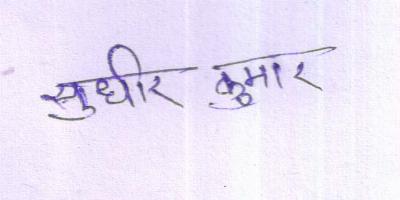 सुधीर कुमार